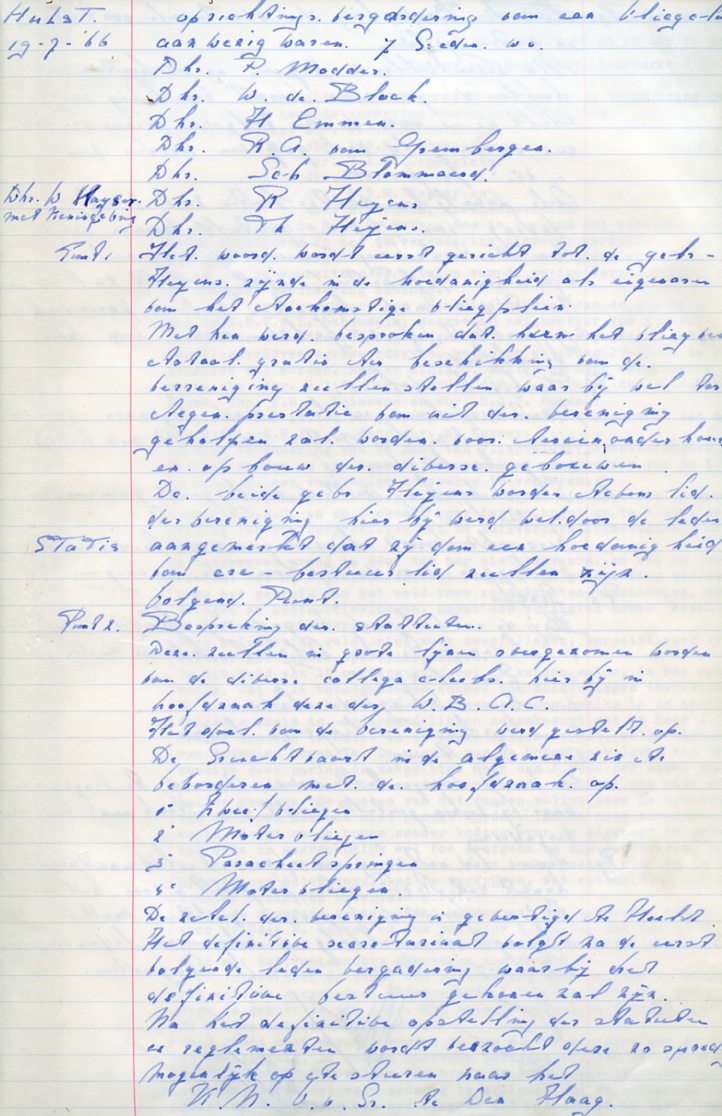 Hulst. oprichtings. vergadering van een vliege
19-7-'66 aanwezig waren. 7 Leden. w.o.
Dhr. P. Modder.
Dhr. W. de. Block.
Dhr. H Emmen.
Dhr. R.A. van Ipenbergen.
Dhr. Seb Blommaerd.
Dhr. W Hayser. Dhr. R Heyens
met kennisgeving Dhr. Th Heyens.
Punt 1 Het. woord. wordt eerst gericht tot. de gebr-
Heyens. zijnde in de hoedanigheid als eigenaren
van het toekomstige vliegplein.
Met hen werd. besproken dat. hierin het vlieg
totaal. gratis ter beschikking van de.
vereniging zullen stellen waar bij wel
tegen. prestatie van uit der. vereniging
geholpen zal. worden. voor.
en. op bouw der. diverse. gebouwen.
De. beide gebr Heyens worden tevens lid.
der vereniging hier bij werd wel. door de leden
Statis aangemerkt dat zij dan een hoedanigheid
van ere - bestuurs lid zullen zijn.
volgend. Punt.
Punt 2. Bespreking der. statuten.
Deze. zullen in grote lijnen overgenomen worden
van de diverse collega clubs. hier bij in
hoofdzaak deze der W. B. A. C.
Het doel. van de vereniging werd gestelt op.
De Luchtvaart in de algemene zin te
bevorderen met. de. hoofdzaak. op.
1° Zweefvliegen
2° Moter vliegen
3° Parachuutspringen
4° Moter vliegen.
De zetel. der. vereniging is gevestigd te Hulst.
Het definitive secretariaat volgt na de eerst
volgende leden vergadering waar bij het
definitive bestuur gekozen zal zijn.
Na het definitive opstelling der statuten
en reglementen wordt verzocht deze zo spoed
mogelijk op te sturen naar het
K. N. V. v. L. te Den Haag.